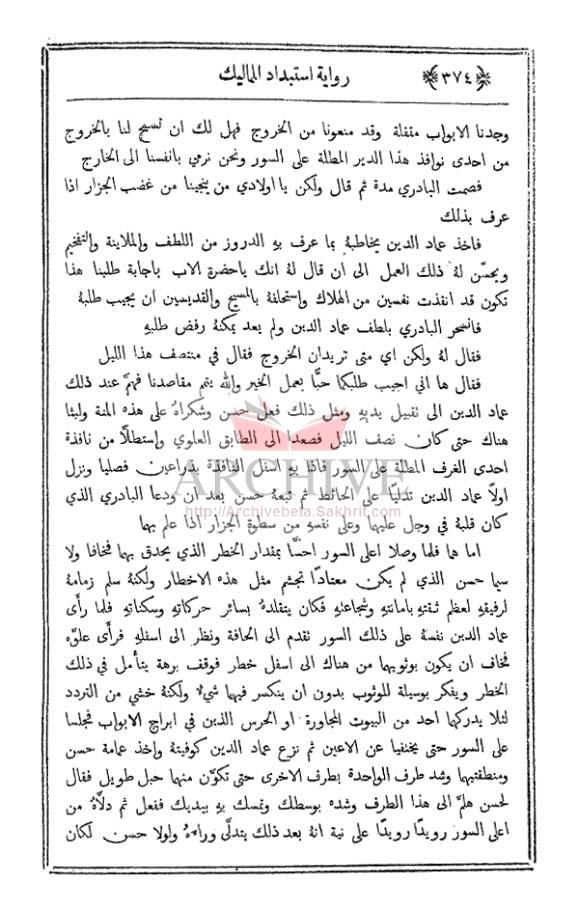 ﴿٣٧٤﴾ رواية استبداد المماليك
وجدنا الابواب مقفلة وقد منعونا من الخروج فهل لك ان تسمح لنا بالخروج
من احدى نوافذ هذا الدير المطلة على السور ونحن نرمي بانفسنا الى الخارج
فصمت البادري مدة ثم قال ولكن يا اولادي من ينجينا من غضب الجزار اذا
عرف بذلك
فاخذ عماد الدين يخاطبهُ بما عرف بهِ الدروز من اللطف والملاينة والتفخيم
ويحسّن لهُ ذلك العمل الى ان قال لهُ انك ياحضرة الاب باجابة طلبنا هذا
تكون قد انقذت نفسين من الهلاك واستحلفهُ بالمسيح والقديسين ان يجيب طلبهُ
فانسحر البادري بلطف عماد الدين ولم يعد يمكنهُ رفض طلبهِ
فقال لهُ ولكن اي متى تريدان الخروج فقال في منتصف هذا الليل
فقال ها اني اجيب طلبكما حبًّا بعمل الخير والله يتمم مقاصدنا فهمَّ عند ذلك
عماد الدين الى تقبيل يديهِ ومثل ذلك فعل حسن وشكراهُ على هذه المنة ولبثا
هناك حتى كان نصف الليل فصعدا الى الطابق العلوي واستطلَّا من نافذة
احدى الغرف المطلة على السور فاذا بهِ اسفل النافذة بذراعين فصليا ونزل
اولًا عماد الدين تدليًا على الحائط ثم تبعهُ حسن بعد ان ودعا البادري الذي
ARCHIVE
http://Archivebeta.Sakhrit.com
كان قلبهُ في وجل عليهما وعلى نفسهِ من سطوة الجزار اذا علم بهما
اما هما فلما وصلا اعلى السور احسَّا بمقدار الخطر الذي يحدق بهما فخافا ولا
سيما حسن الذي لم يكن معتادًا تجشم مثل هذه الاخطار ولكنهُ سلم زمامهُ
لرفيقهِ لعظم ثقتهِ بامانتهِ وشجاعتهِ فكان يتقلدهُ بسائر حركاتهِ وسكناتهِ فلما رأى
عماد الدين نفسهُ على ذلك السور تقدم الى الحافة ونظر الى اسفلهِ فرأى علوّه
فخاف ان يكون بوثوبهما من هناك الى اسفل خطر فوقف برهة يتأمل في ذلك
الخطر ويفكر بوسيلة للوثوب بدون ان ينكسر فيهما شيءٌ ولكنهُ خشي من التردد
لئلا يدركهما احد من البيوت المجاورة او الحرس الذين في ابراج الابواب فجلسا
على السور حتى يختفيا عن الاعين ثم نزع عماد الدين كوفيتهُ واخذ عمامة حسن
ومنطقتيهما وشد طرف الواحدة بطرف الاخرى حتى تكوّن منها حبل طويل فقال
لحسن هلمَّ الى هذا الطرف وشده بوسطك وتمسك بهِ بيديك ففعل ثم دلّاهُ من
اعلى السور رويدًا رويدًا على نية انهُ بعد ذلك يتدلّى وراءهُ ولولا حسن لكان